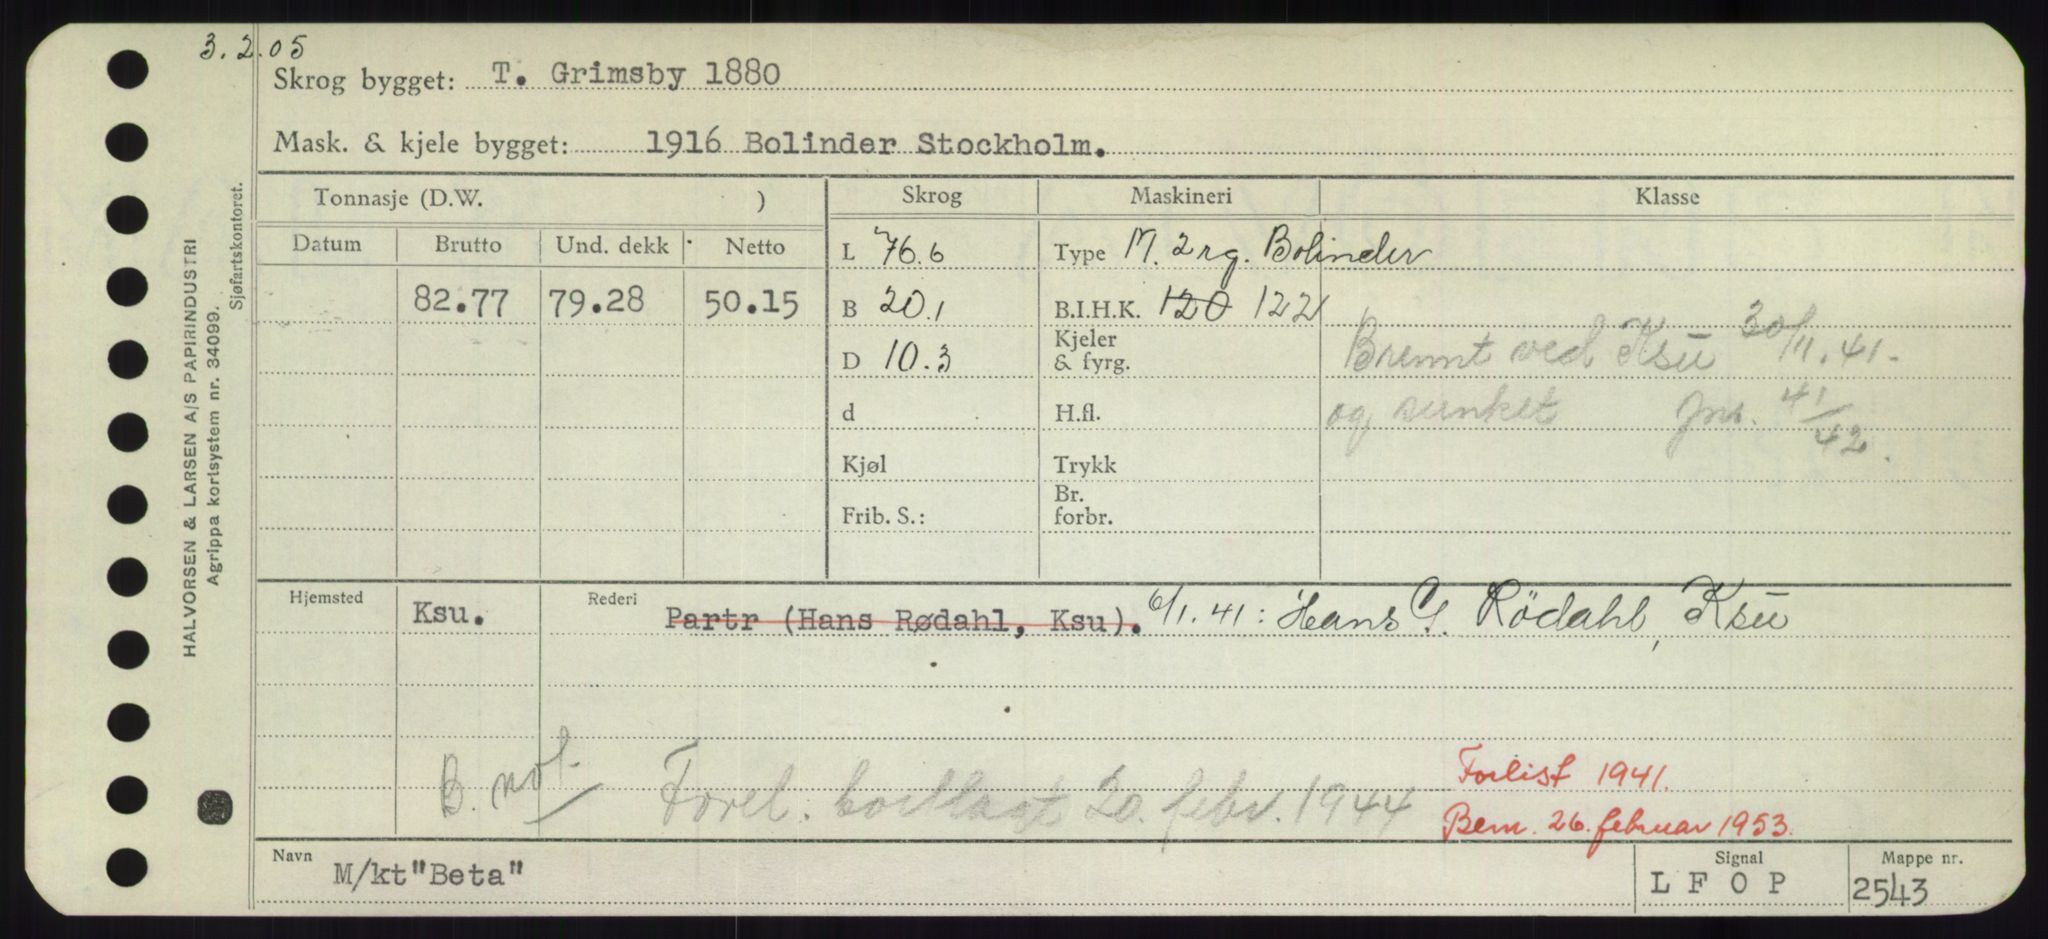 3.2.05
Skrog bygget: T. Grimsby 1880
Mask. & kjele bygget: 1916 Bolinder Stockholm.
Tonnasje (D.W. ) Skrog Maskineri Klasse
Datum Brutto Und. dekk Netto
L 76.6 Type M. 2 rg. Bolinder
82.77 79.28 50.15 B 20.1 B.I.H.K. 120 122
Brennt ved Ksu 30/11.41.
D 10.3 Kjeler & fyrg.
d H.fl. og sunket 41/42.
Kjøl Trykk
Frib. S.: Br. forbr.
Hjemsted Ksu. Rederi Partr (Hans Rødahl, Ksu). 6/1.41: Hans G. Rødahl, Ksu
B. not.
20. febr. 1944
Forlist 1941.
Bem. 26. februar 1953.
Navn M/kt"Beta" Signal L F O P Mappe nr. 2543
HALVORSEN & LARSEN A/S PAPIRINDUSTRI
Agrippa kortsystem nr. 34099.
Sjøfartskontoret.